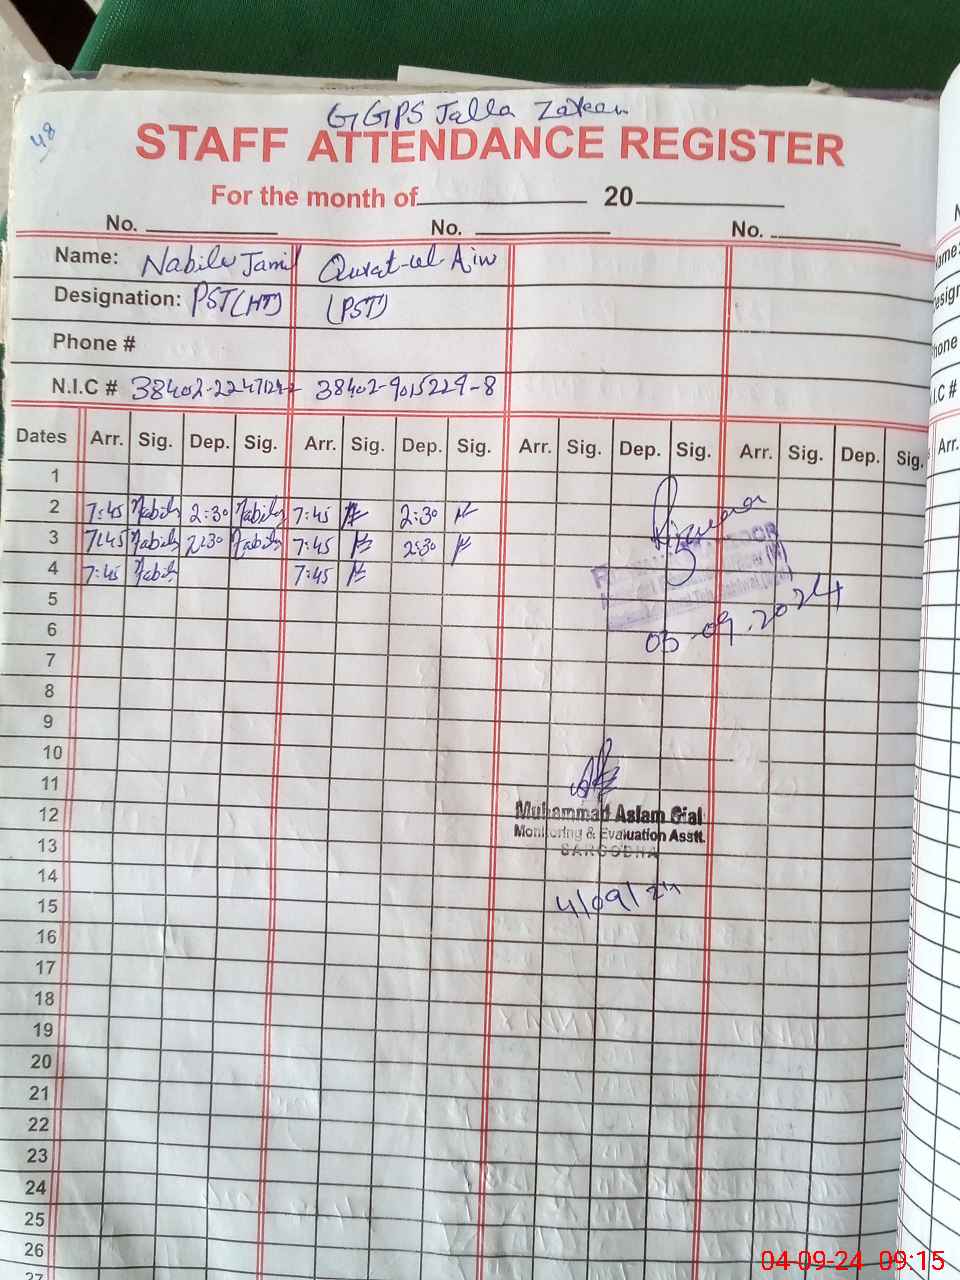 48
GGPS Jalla Zakeen
STAFF ATTENDANCE REGISTER
For the month of 20
No. No. No.
Name: Nabila Jamil Qurat-ul-Ain
Designation: PST(HT) (PST)
Phone #
N.I.C # 38402-9015229-8
Dates Arr. Sig. Dep. Sig. Arr. Sig. Dep. Sig. Arr. Sig. Dep. Sig. Arr. Sig. Dep. Sig.
1
2 7:45 Nabila 2:30 Nabila 7:45 2:30
3 7:45 Nabila 2:30 Nabila 7:45 2:30
4 7:45 Nabila 7:45
5
03-09-2024
6
7
8
9
10
11
12 Muhammad Aslam Gial
13 Monitoring & Evaluation Asstt.
SARGODHA
14
15 4/09/24
16
17
18
19
20
21
22
23
24
25
26
27
Arr.
04-09-24 09:15